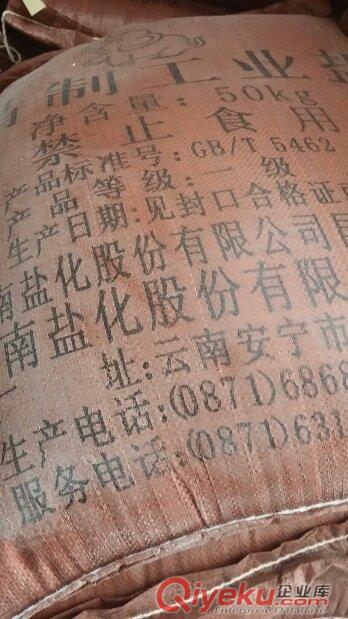 精制工业盐
净含量:50kg
禁止食用
产品标准号:GB/T 5462
产品等级:一级
生产日期:见封口合格证
南盐化股份有限公司
南盐化股份有限
址:云南安宁市
生产电话:(0871)6868
服务电话:(0871)631
Qiyeku.com 企业库
Enterprise Database